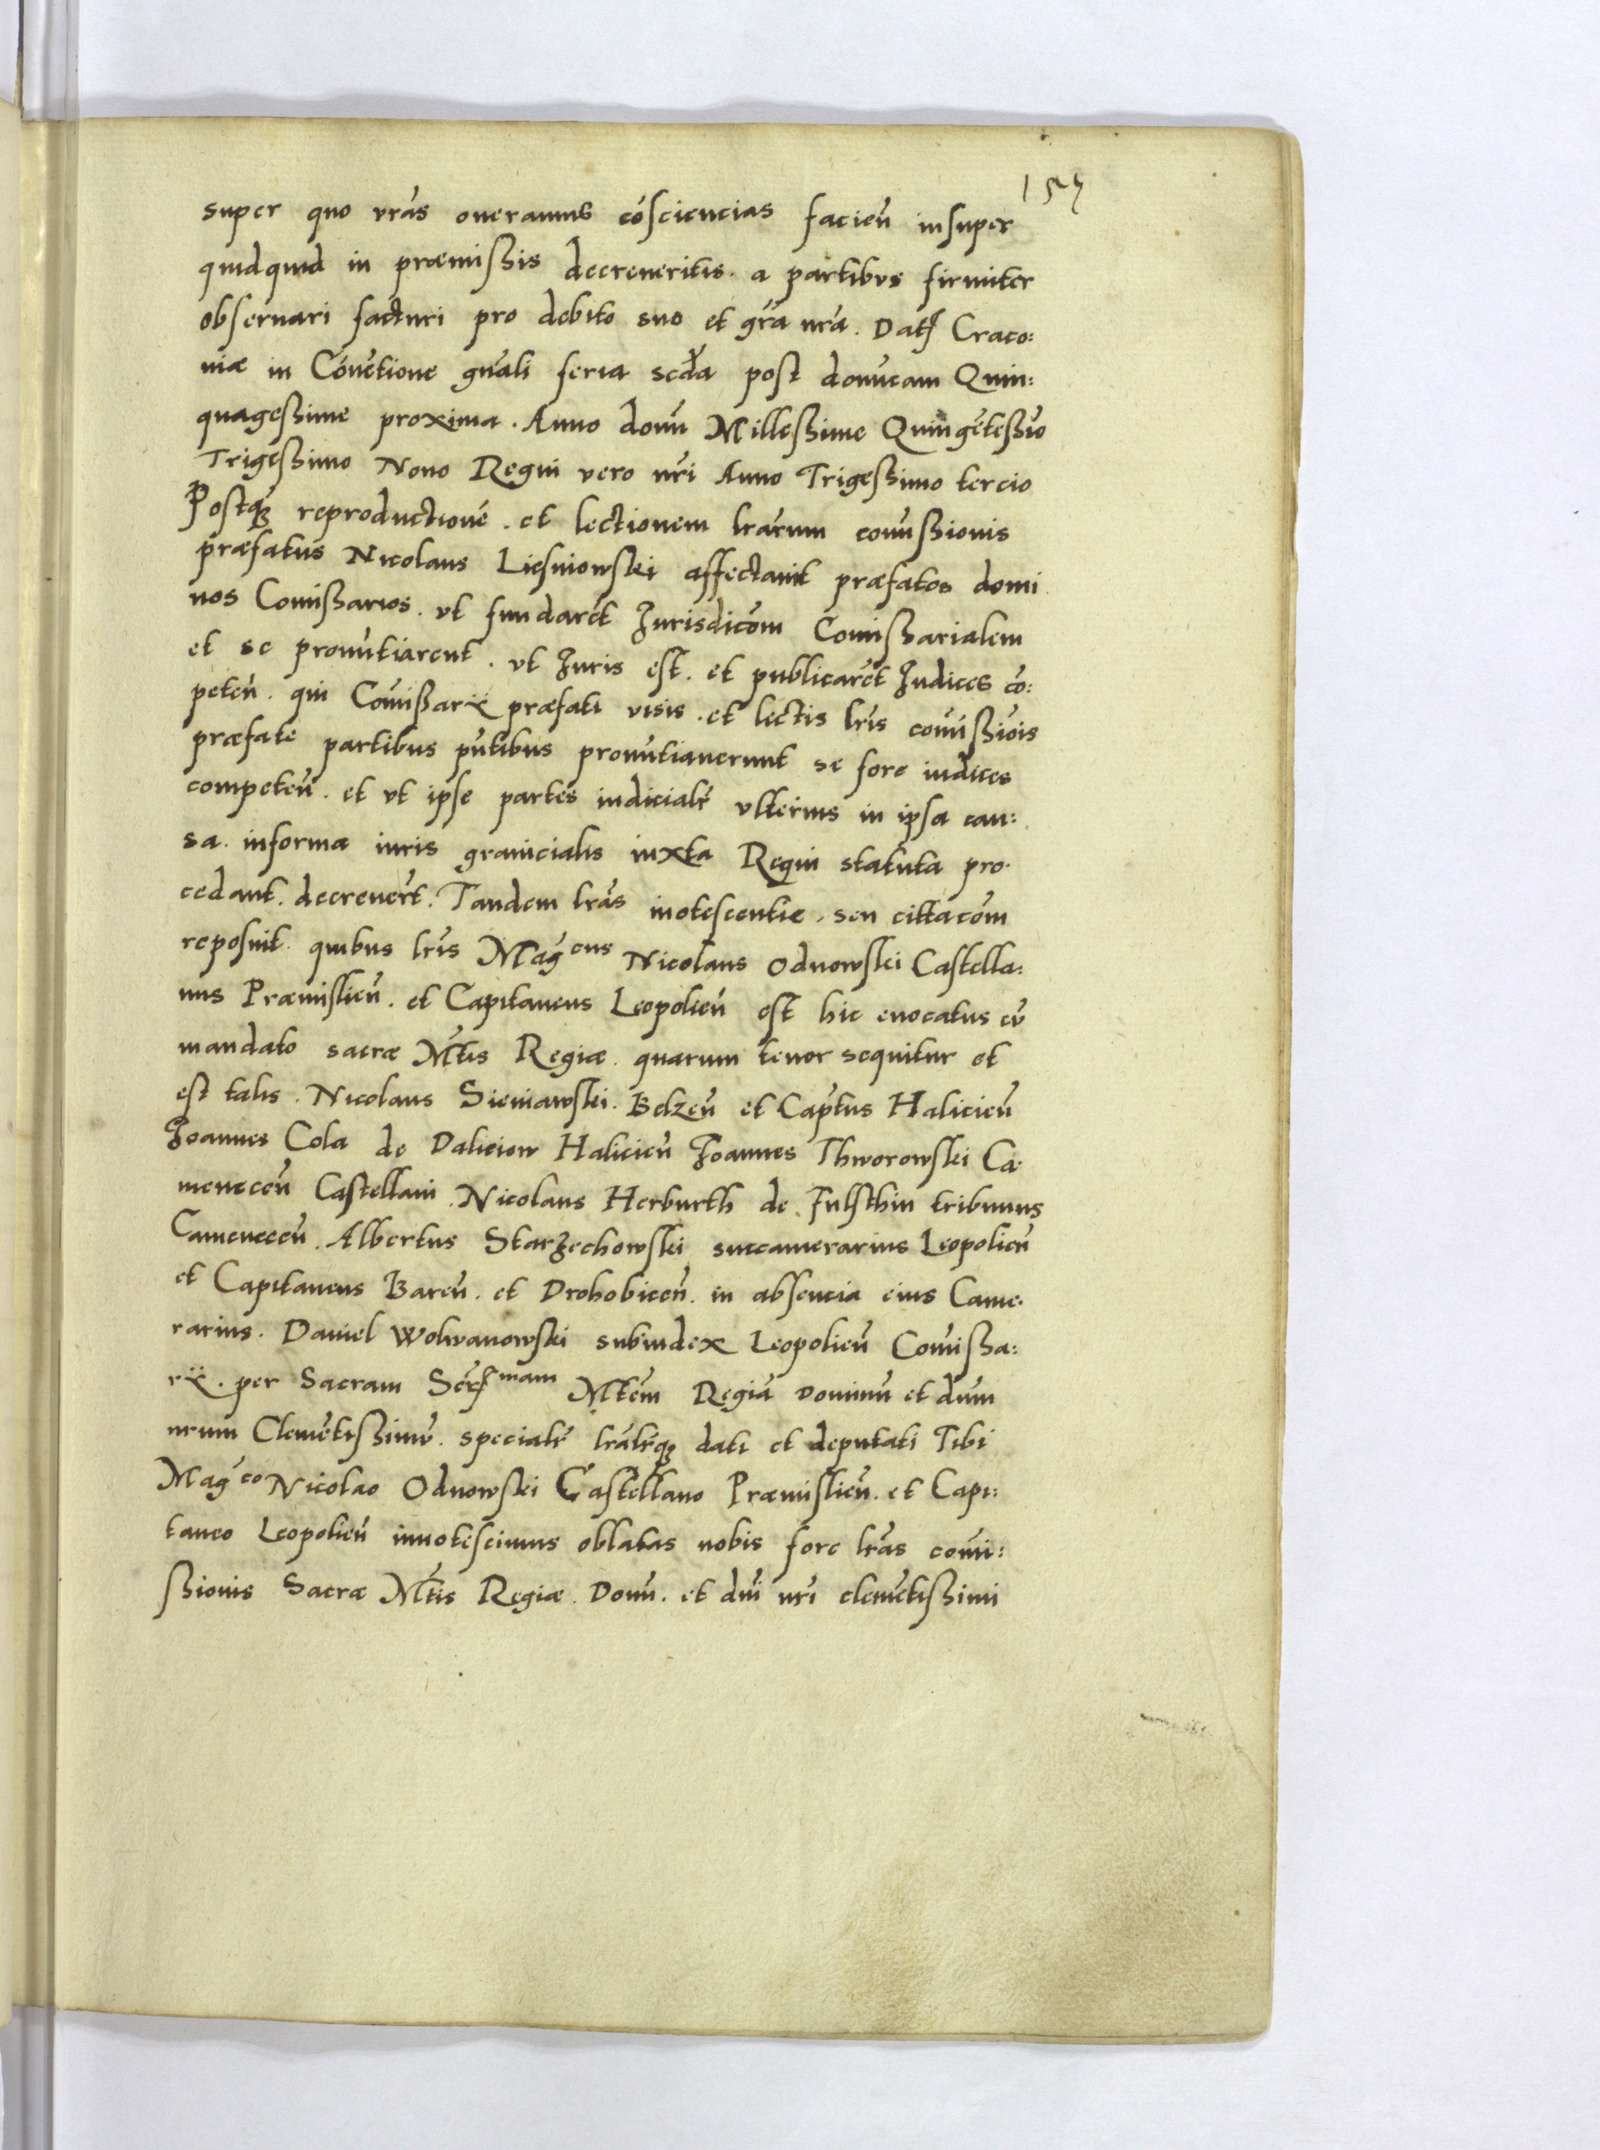 super quo vrãs oneramus cõsciencias facieñ insuper
quidquid in præmissis decreveritis. a partibus firmiter
observari facturi pro debito suo et grã nrã. Datʃ Craco:
niæ in Cõvẽtione gñali feria scďa post domĩcam Quin:
quagessime proxima. Anno domĩ Millessimo Quingẽtessĩo
Trigessimo Nono Regni vero nrĩ Anno Trigessimo tercio
Postqꝫ reproductionẽ. et lectionem lrãrum comissionis
præfatus Nicolaus Liesniowski affectavit præfatos domi
nos Comissarios. ut fundarẽt Jurisdicõm Comissarialem
et se pronũtiarent. ut Juris est. et publicarẽt Judices cõ:
peteñ. qui Comissarij præfati visis. et lectis lrĩs comissiõis
præfate partibus pñtibus pronũtiaverunt se fore iudices
competeñ. et ut ipse partes iudicialẽ ulterius in ipsa cau:
sa. informa iuris granicialis iuxta Regni statuta pro
cedant. decreverẽt. Tandem lrãs inotescentie. seu cittacõm
reposuit. quibus lrĩs Mag̃cus Nicolaus Odnowski Castella:
nus Præmislieñ. et Capitaneus Leopolieñ est hic evocatus cũ
mandato sacræ Mt̃is Regiæ. quarum tenor sequitur et
est talis. Nicolaus Sieniawski. Belzeñ et Captũs Halicieñ
Joannes Cola de Daliciow Halicieñ Joannes Thworowski Ca
meneceñ Castellani. Nicolaus Herburth de Fulsthin tribunus
Cameneceñ. Albertus Starzechowski succamerarius Leopolieñ
et Capitaneus Bareñ. et Drohobiceñ. in absencia eius Came.
rarius. Daniel Wolwanowski subiudex Leopolieñ Comissa:
rij. per Sacram Serʃmam Mt̃em Regiã Dominũ et dnũm
nrum Clemẽtissimũ. specialẽ lrãlẽqꝫ dati et deputati Tibi
Mag̃co Nicolao Odnowski Castellano Præmislieñ. et Capi:
taneo Leopolieñ innotescimus oblatas nobis fore lrãs comi:
ssionis Sacræ Mt̃is Regiæ. Domĩ. et dnĩ nrĩ clemẽtissimi